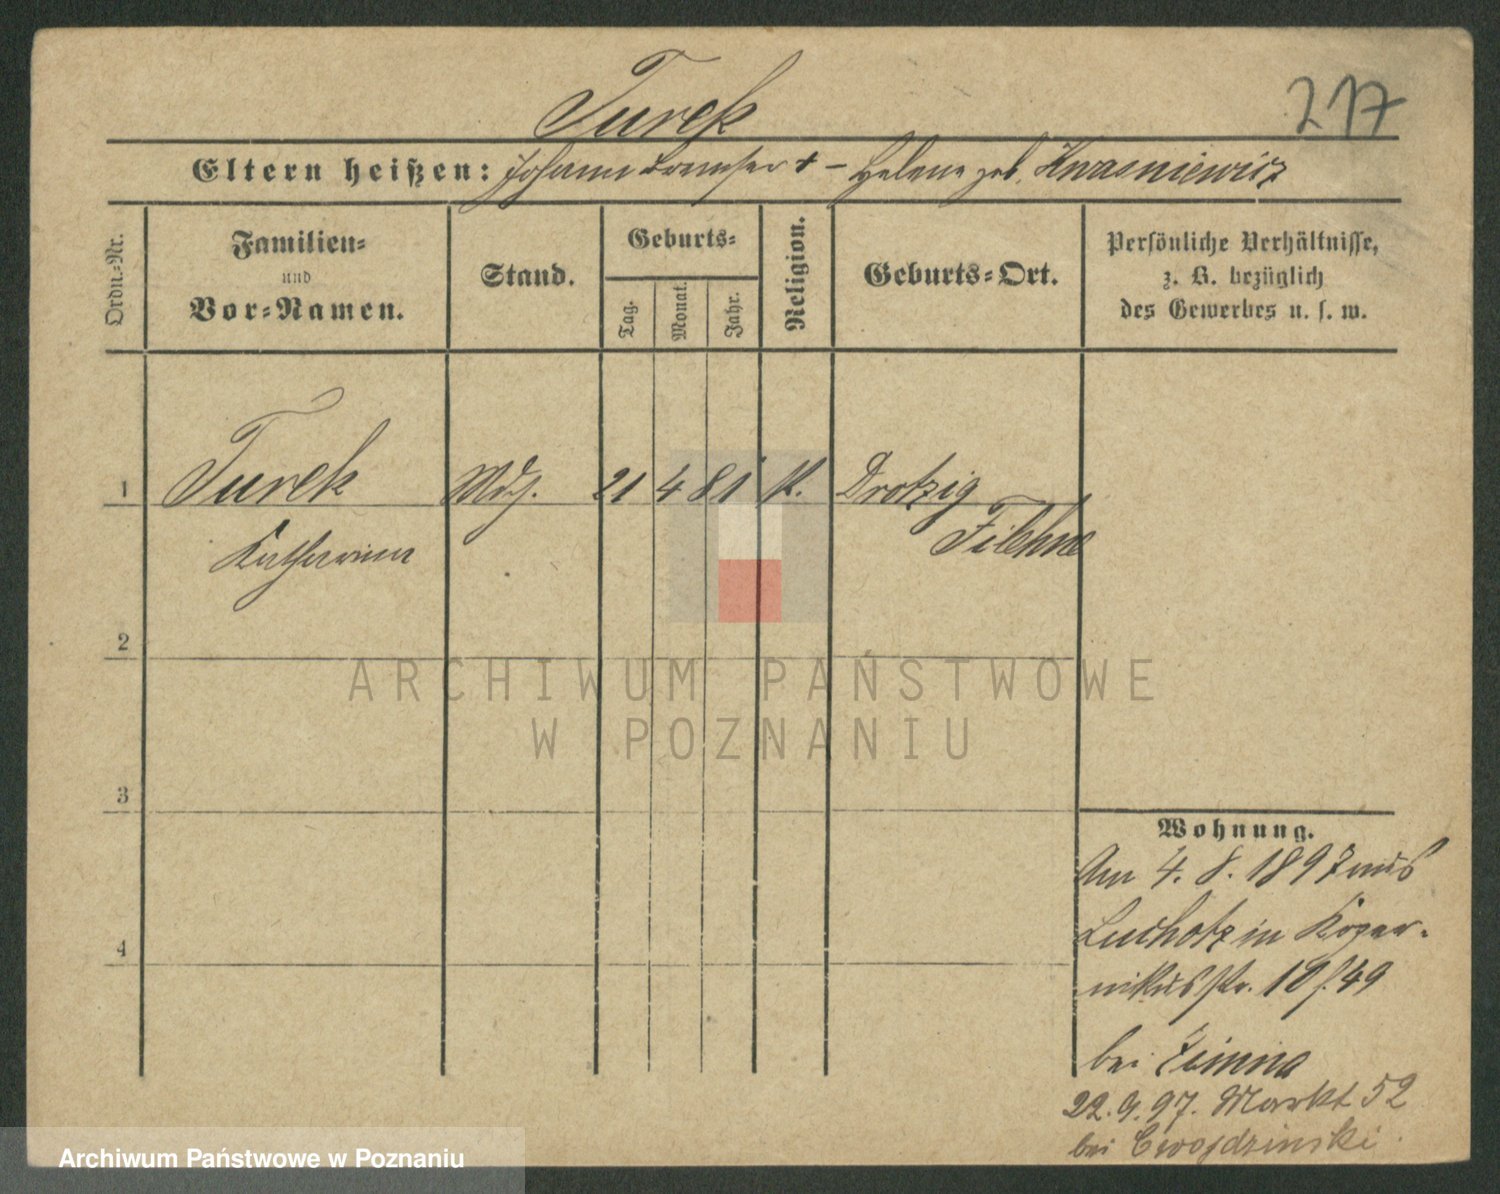 Turek
217
Eltern heißen: Johann + – Helene geb. Kwasniewicz
Ordn.-Nr.
Familien-
und
Vor-Namen.
Stand.
Geburts-
Tag.
Monat.
Jahr.
Religion.
Geburts-Ort.
Persönliche Verhältnisse,
z. B. bezüglich
des Gewerbes u. s. w.
1 Turek 21 4 81 k. Drotzig
Filehne
Katharina
2
ARCHIWUM PAŃSTWOWE
W POZNANIU
3
4
Wohnung.
Am 4. 8. 1897 aus
Luchotz in Koper-
nikusstr. 10 f. 49
bei Zimna
22. 9. 97. Markt 52
bei Cwojdzinski.
Archiwum Państwowe w Poznaniu